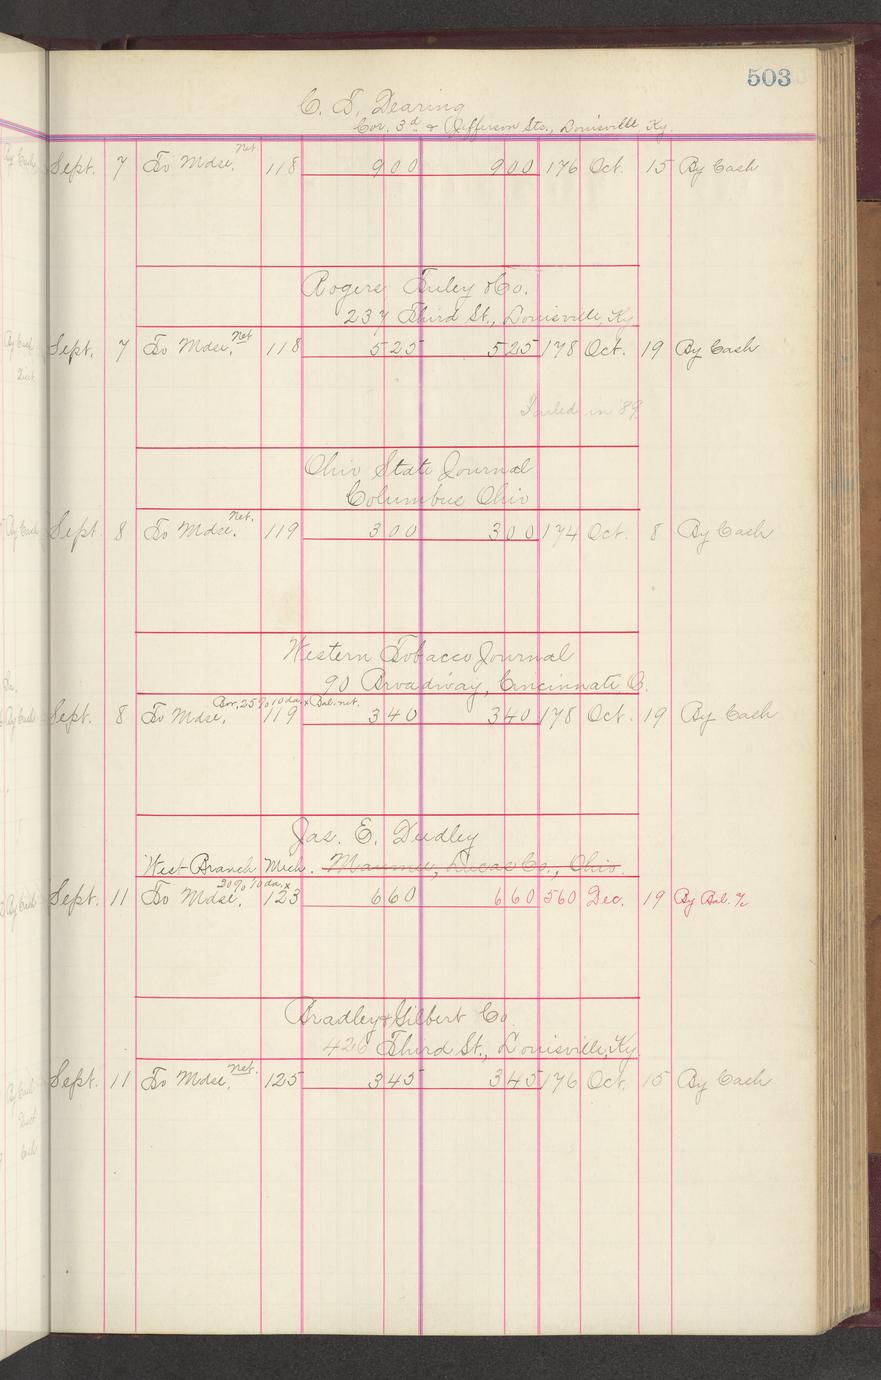 503
C. T. Dearing
Cor. 3d & Jefferson Sts., Louisville, Ky.
Sept. 7 To Mdse. Net 118 900 900 176 Oct. 15 By Cash
Rogers Tuley & Co.
237 Third St., Louisville, Ky
Sept. 7 To Mdse. Net 118 525 525 178 Oct. 19 By Cash
Failed in '89
Ohio State Journal
Columbus Ohio
Sept. 8 To Mdse. Net. 119 300 300 174 Oct. 8 By Cash
Western Tobacco Journal
90 Broadway, Cincinnati, O.
Bor. 25% 10 da. x Bal. net.
Sept. 8 To Mdse. 119 340 340 178 Oct. 19 By Cash
Jas. E. Dudley
West Branch Mich. Maumee, Lucas Co., Ohio.
20% 10 da. x
Sept. 11 To Mdse. 123 660 660 560 Dec. 19 By Bal. %
Bradley & Gilbert Co.
426 Third St., Louisville, Ky.
Sept. 11 To Mdse. Net. 125 345 345 176 Oct. 15 By Cash